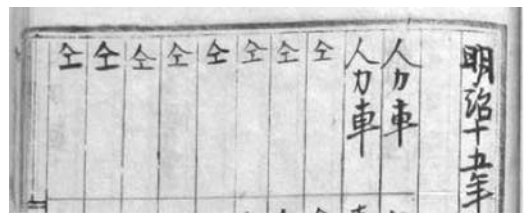 明治十五年
人力車
人力車
仝
仝
仝
仝
仝
仝
仝
仝